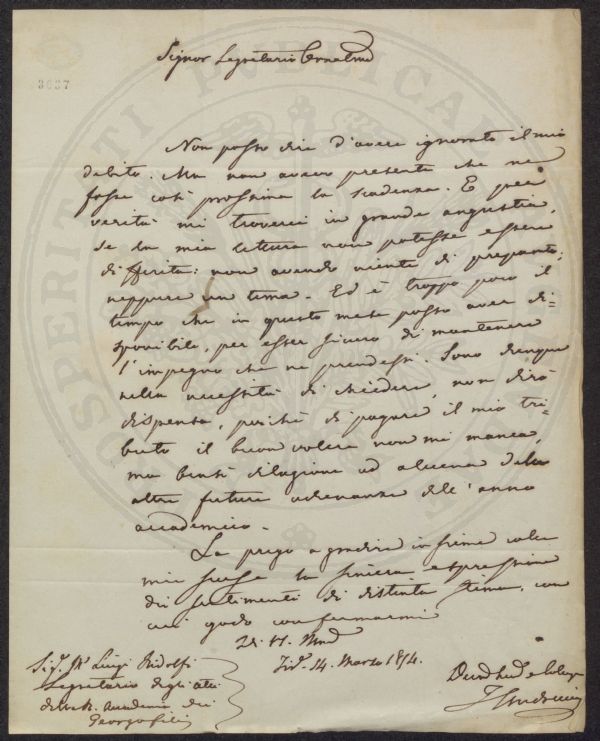 3637
Signor Segretario Ornatmo
Non posso dire d'avere ignorato il mio
debito. Ma non avevo presente che ne
fosse così prossima la scadenza. E per
verità mi troverei in grande angustia,
se la mia lettura non potesse essere
differita: non avendo niente di preparato;
neppure un tema. Ed è troppo poco il
tempo che in questo mese posso aver di=
sponibile, per esser sicuro di mantenere
l'impegno che ne prendessi. Sono dunque
nella necessità di chiedere, non dirò
dispensa, perchè di pagare il mio tri=
buto il buon volere non mi manca,
ma bensì dilazione ad alcuna delle
altre future adunanze dell'anno
accademico.
La prego a gradire insieme colle
mie scuse la sincera espressione
dei sentimenti di distinta stima, con
cui godo confermarmi
14. Marzo
Sig. Mse Luigi Ridolfi
Segretario degli atti
della R. Accademia dei
Georgofili
PROSPERITATI PUBLICAE